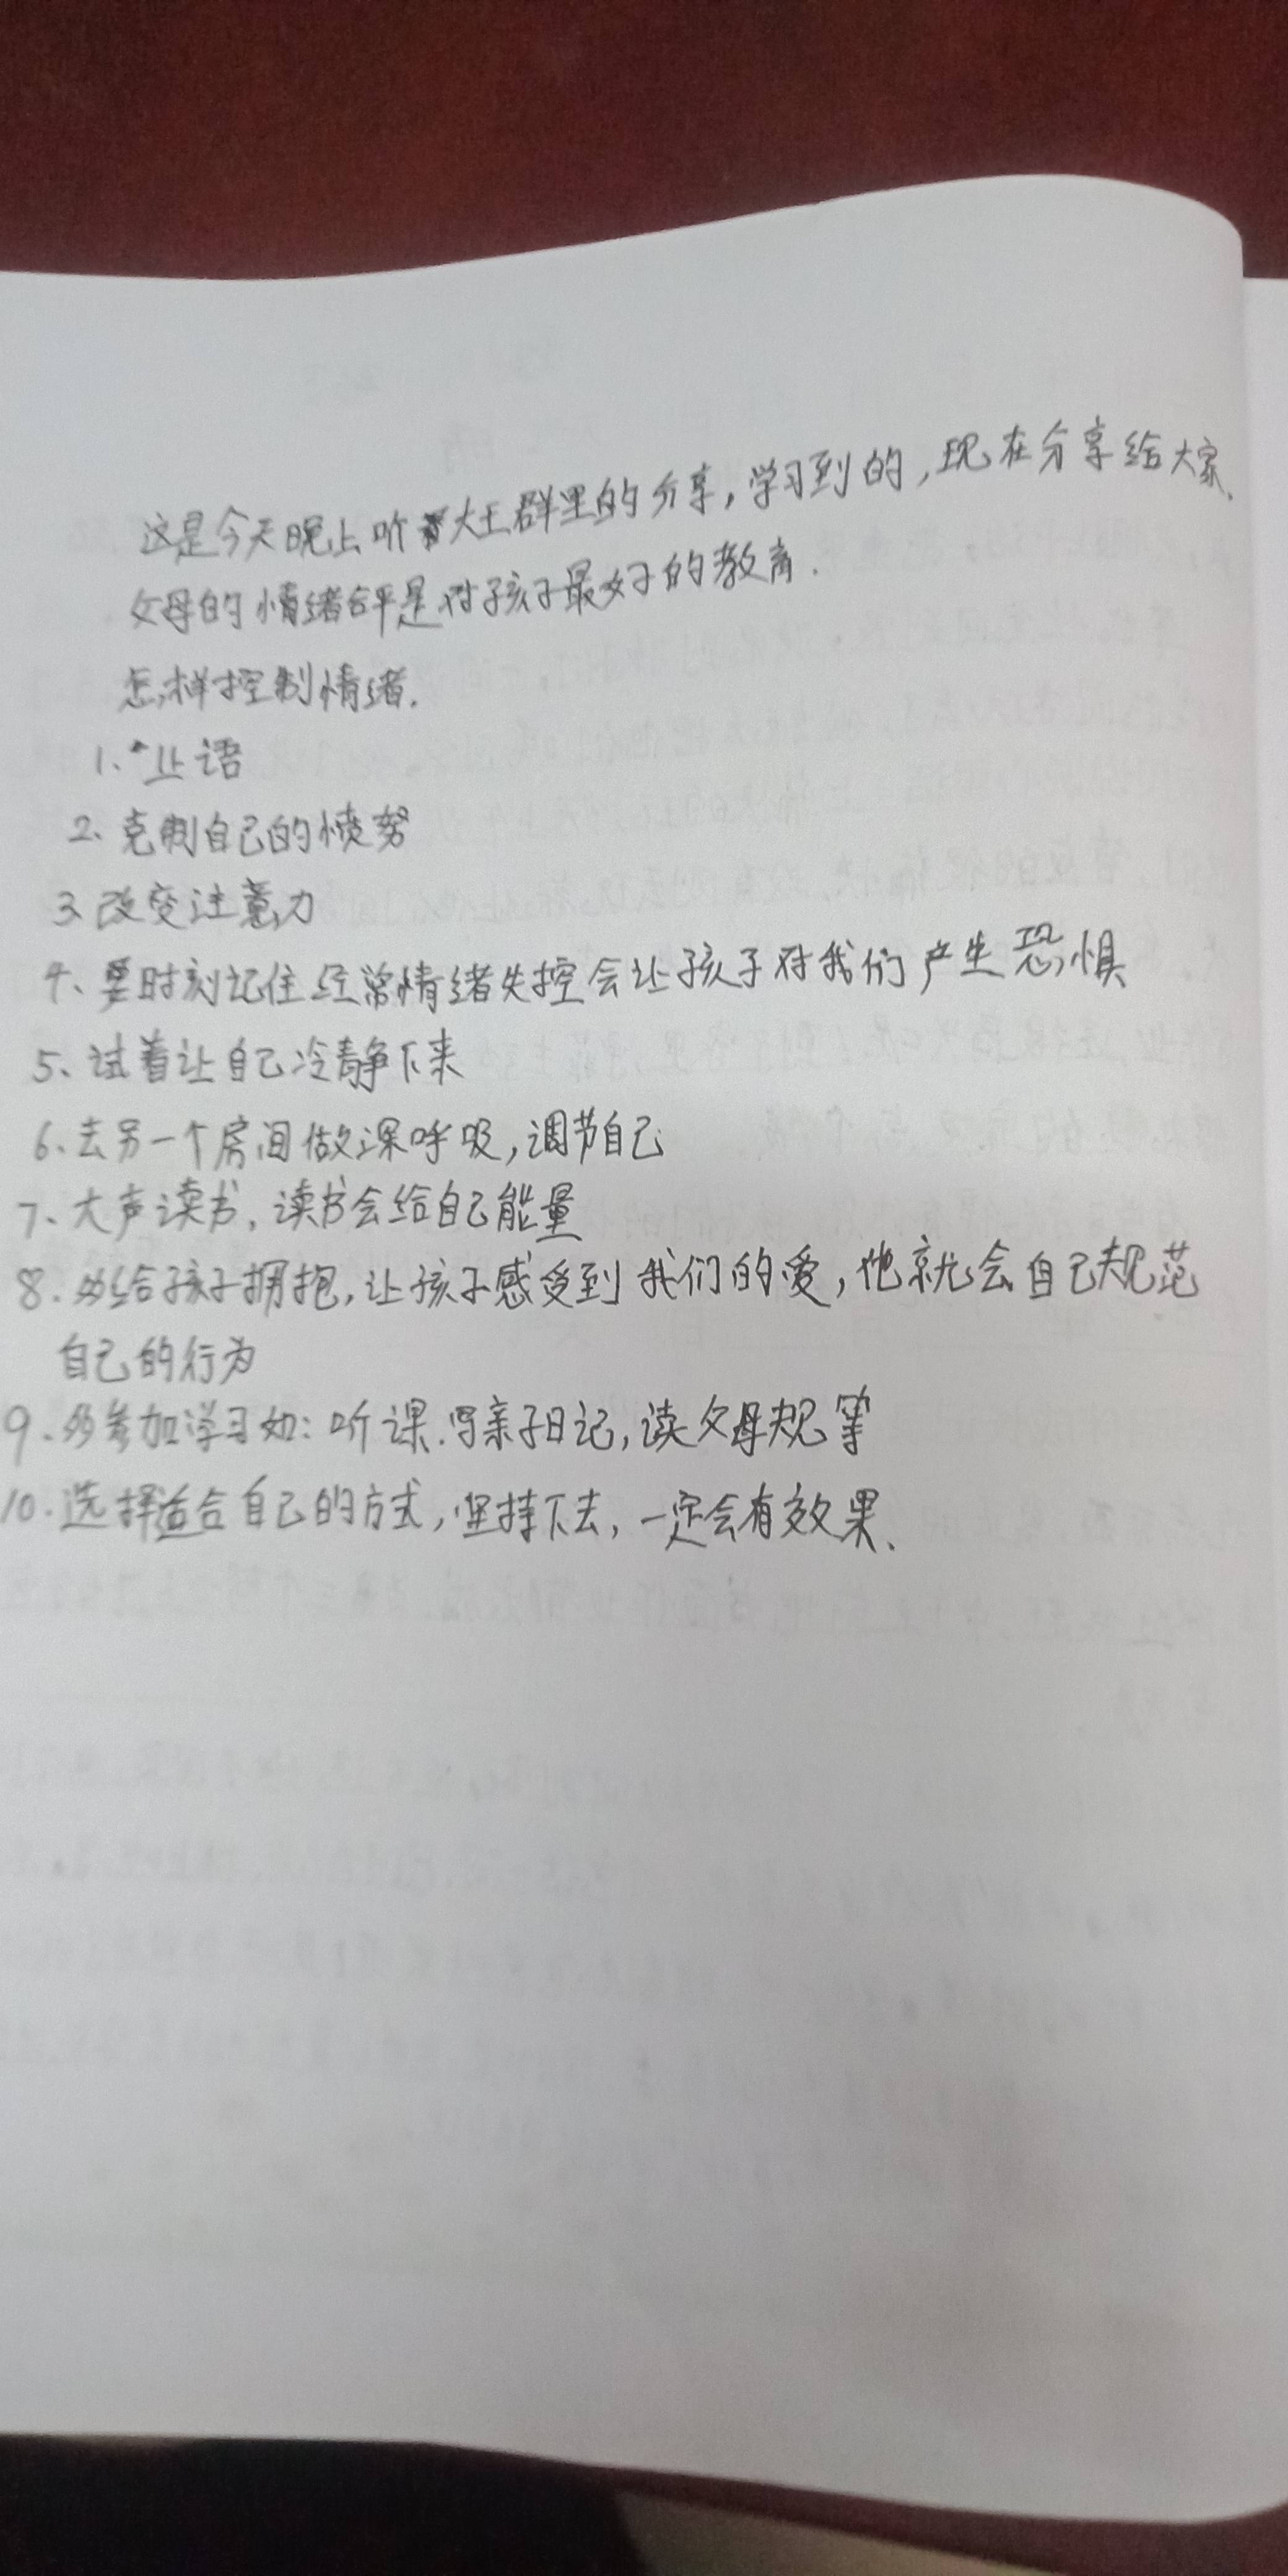 这是今天晚上听大王群里的分享，学习到的，现在分享给大家、
父母的情绪合平是对孩子最好的教育.
怎样控制情绪.
1、止语
2、克制自己的愤努
3、改变注意力
4、要时刻记住经常情绪失控会让孩子对我们产生恐惧
5、试着让自己冷静下来
6、去另一个房间做深呼吸，调节自己
7、大声读书，读书会给自己能量
8.多给孩子拥抱，让孩子感受到我们的爱，他就会自己规范
自己的行为
9.多参加学习如：听课.写亲子日记，读父母规等
10.选择适合自己的方式，坚持下去，一定会有效果、